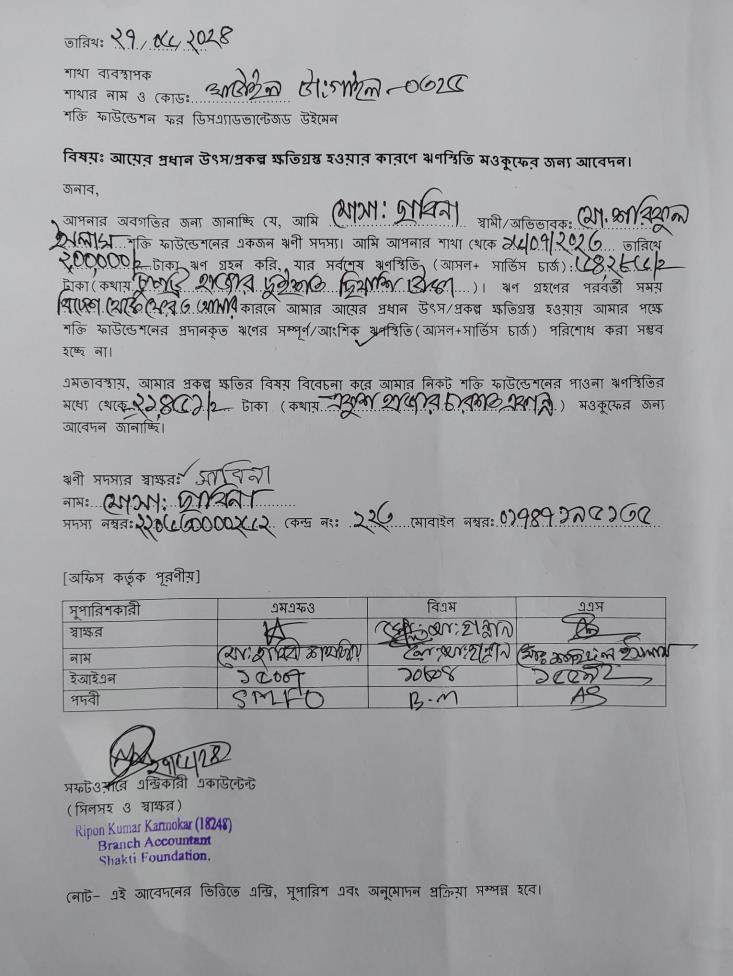 তারিখ: ২৭/০৫/২০২৪
শাখা ব্যবস্থাপক
শাখার নাম ও কোড: টাংগাইল -০৩২৫
শক্তি ফাউন্ডেশন ফর ডিসএ্যাডভান্টেজড উইমেন
বিষয়: আয়ের প্রধান উৎস/প্রকল্প ক্ষতিগ্রস্থ হওয়ার কারণে ঋণস্থিতি মওকুফের জন্য আবেদন।
জনাব,
আপনার অবগতির জন্য জানাচ্ছি যে, আমি মোসা: ছাবিনা স্বামী/অভিভাবক: মো. শরিফুল
ইসলাম শক্তি ফাউন্ডেশনের একজন ঋণী সদস্য। আমি আপনার শাখা থেকে তারিখে
টাকা ঋণ গ্রহন করি, যার সর্বশেষ ঋণস্থিতি (আসল+ সার্ভিস চার্জ):
টাকা (কথায় হাজার দুইশত ছিয়াশি টাকা)। ঋণ গ্রহণের পরবর্তী সময়
বিদেশ থেকে ফেরত আসার কারনে আমার আয়ের প্রধান উৎস/প্রকল্প ক্ষতিগ্রস্থ হওয়ায় আমার পক্ষে
শক্তি ফাউন্ডেশনের প্রদানকৃত ঋণের সম্পূর্ণ/আংশিক ঋণস্থিতি (আসল+সার্ভিস চার্জ) পরিশোধ করা সম্ভব
হচ্ছে না।
এমতাবস্থায়, আমার প্রকল্প ক্ষতির বিষয় বিবেচনা করে আমার নিকট শক্তি ফাউন্ডেশনের পাওনা ঋণস্থিতির
মধ্যে থেকে ২১,৪৫১/= টাকা (কথায় একুশ হাজার চারশত একান্ন) মওকুফের জন্য
আবেদন জানাচ্ছি।
ঋণী সদস্যর স্বাক্ষর: সাবিনা
নাম: মোসা: ছাবিনা
সদস্য নম্বর: কেন্দ্র নং: ২২৩ মোবাইল নম্বর:
[অফিস কর্তৃক পূরণীয়]
সুপারিশকারী এমএফও বিএম এএস
স্বাক্ষর মো: হান্নান
নাম মো: মো: হান্নান মো: ইসলাম
ইআইএন
পদবী SMFO B-M AS
২৭/৫/২৪
সফটওয়্যারে এন্ট্রিকারী একাউন্টেন্ট
(সিলসহ ও স্বাক্ষর)
Ripon Kumar Karmokar (18248)
Branch Accountant
Shakti Foundation.
নোট- এই আবেদনের ভিত্তিতে এন্ট্রি, সুপারিশ এবং অনুমোদন প্রক্রিয়া সম্পন্ন হবে।